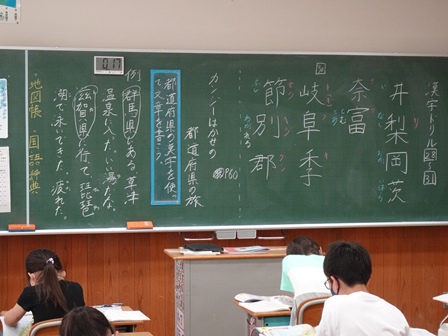 漢字ドリル 29 31
井梨岡茨
奈富
岐阜季子
節別郡
カンジーはかせの
都道府県の旅
P60
都道府県の漢字を使っ
て文章を書こう。
例 群馬県にある草津
温泉に入た。いい湯だな。
滋賀県に行て、琵琶
湖で泳いできた。疲れた。
・地図帳 ・国語辞典